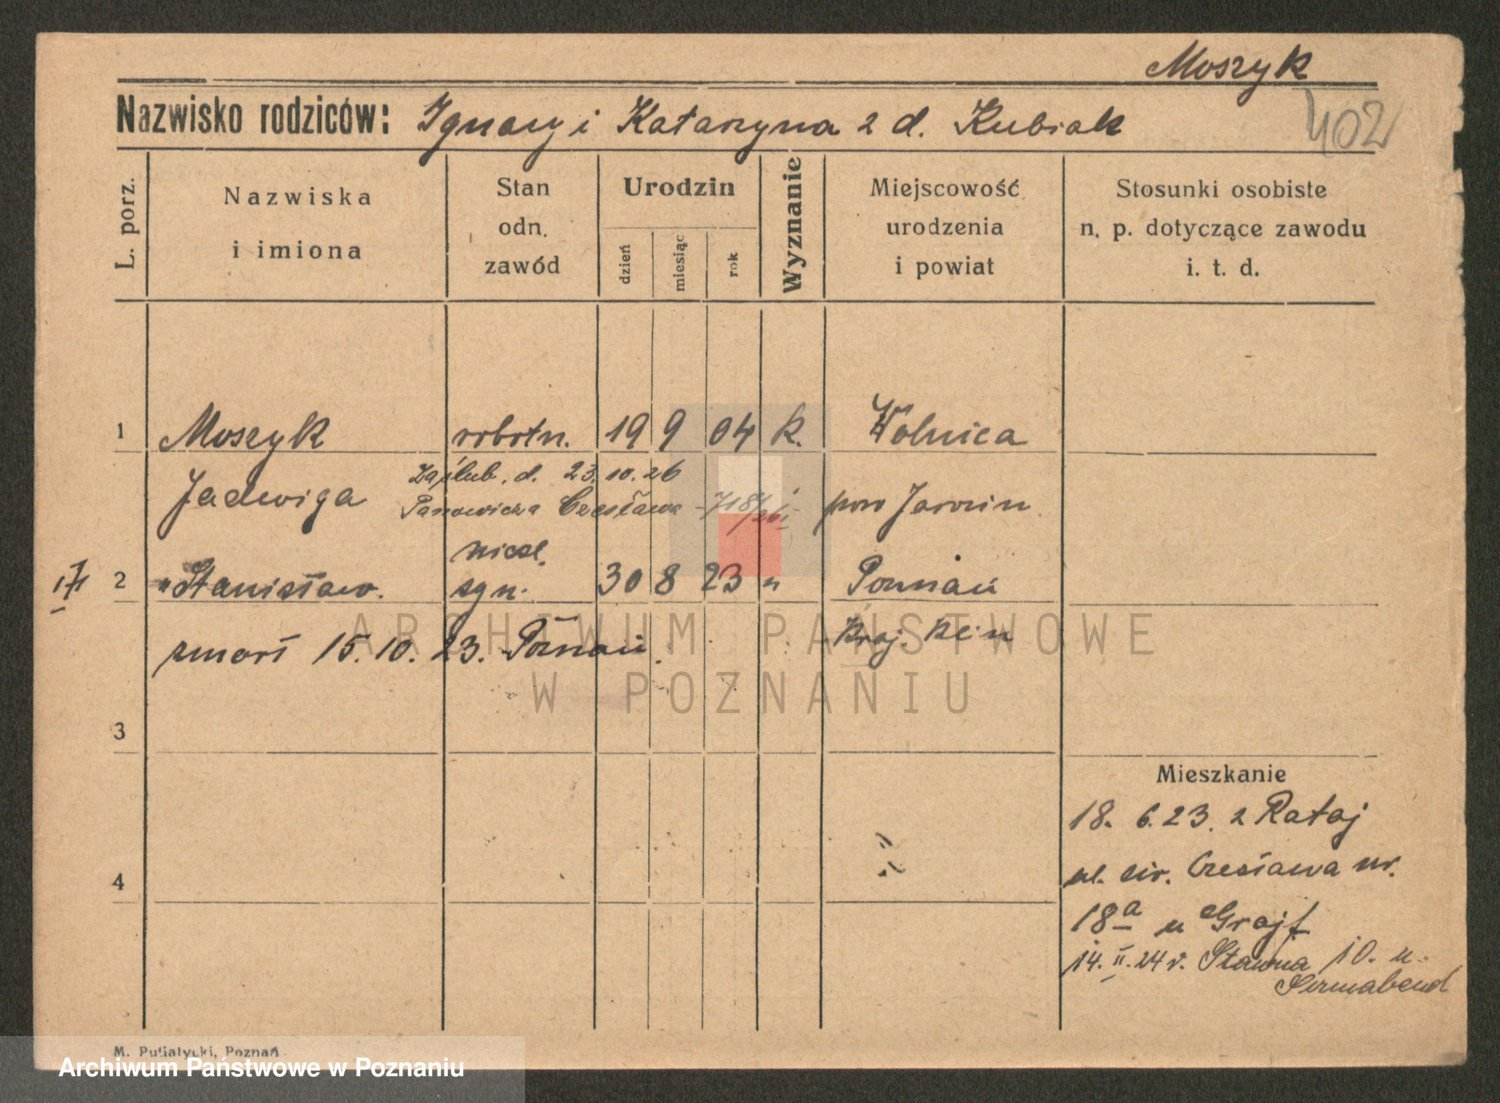 Moszyk
Nazwisko rodziców: Ignacy i Katarzyna z d. Kubiak
402
L. porz.
Nazwiska
i imiona
Stan
odn.
zawód
Urodzin
dzień
miesiąc
rok
Wyznanie
Miejscowość
urodzenia
i powiat
Stosunki osobiste
n. p. dotyczące zawodu
i. t. d.
1 Moszyk robotn. 19 9 04 k. Wolnica
Jadwiga
Zaślub. d. 23.10.26
Czesława 718/26
pow Jarocin
niezl.
2 Stanisław. syn. 30 8 23 " Poznań
zmarł 15.10.23. Poznań.
ARCHIWUM PAŃSTWOWE
W POZNANIU
3
Mieszkanie
18. 6.23. z Rataj
ul. św. Czesława nr.
4
18a u Grajf
14.II.24 r. Stawna 10. u.
Sonnabend
M. Putiatycki, Poznań
Archiwum Państwowe w Poznaniu